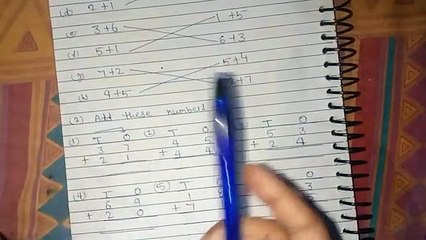 (d) 2+1
(e) 3+6 1+5
(f) 5+1 6+3
(g) 7+2 5+4
(h) 4+5 +7
(2) Add these numbers
(1) T O (2) T O T O
3 7 4 5 5 3
+ 2 1 + 4 4 + 2 4
(4) T O (5) T O
6 9 1 3
+ 2 0 + 7